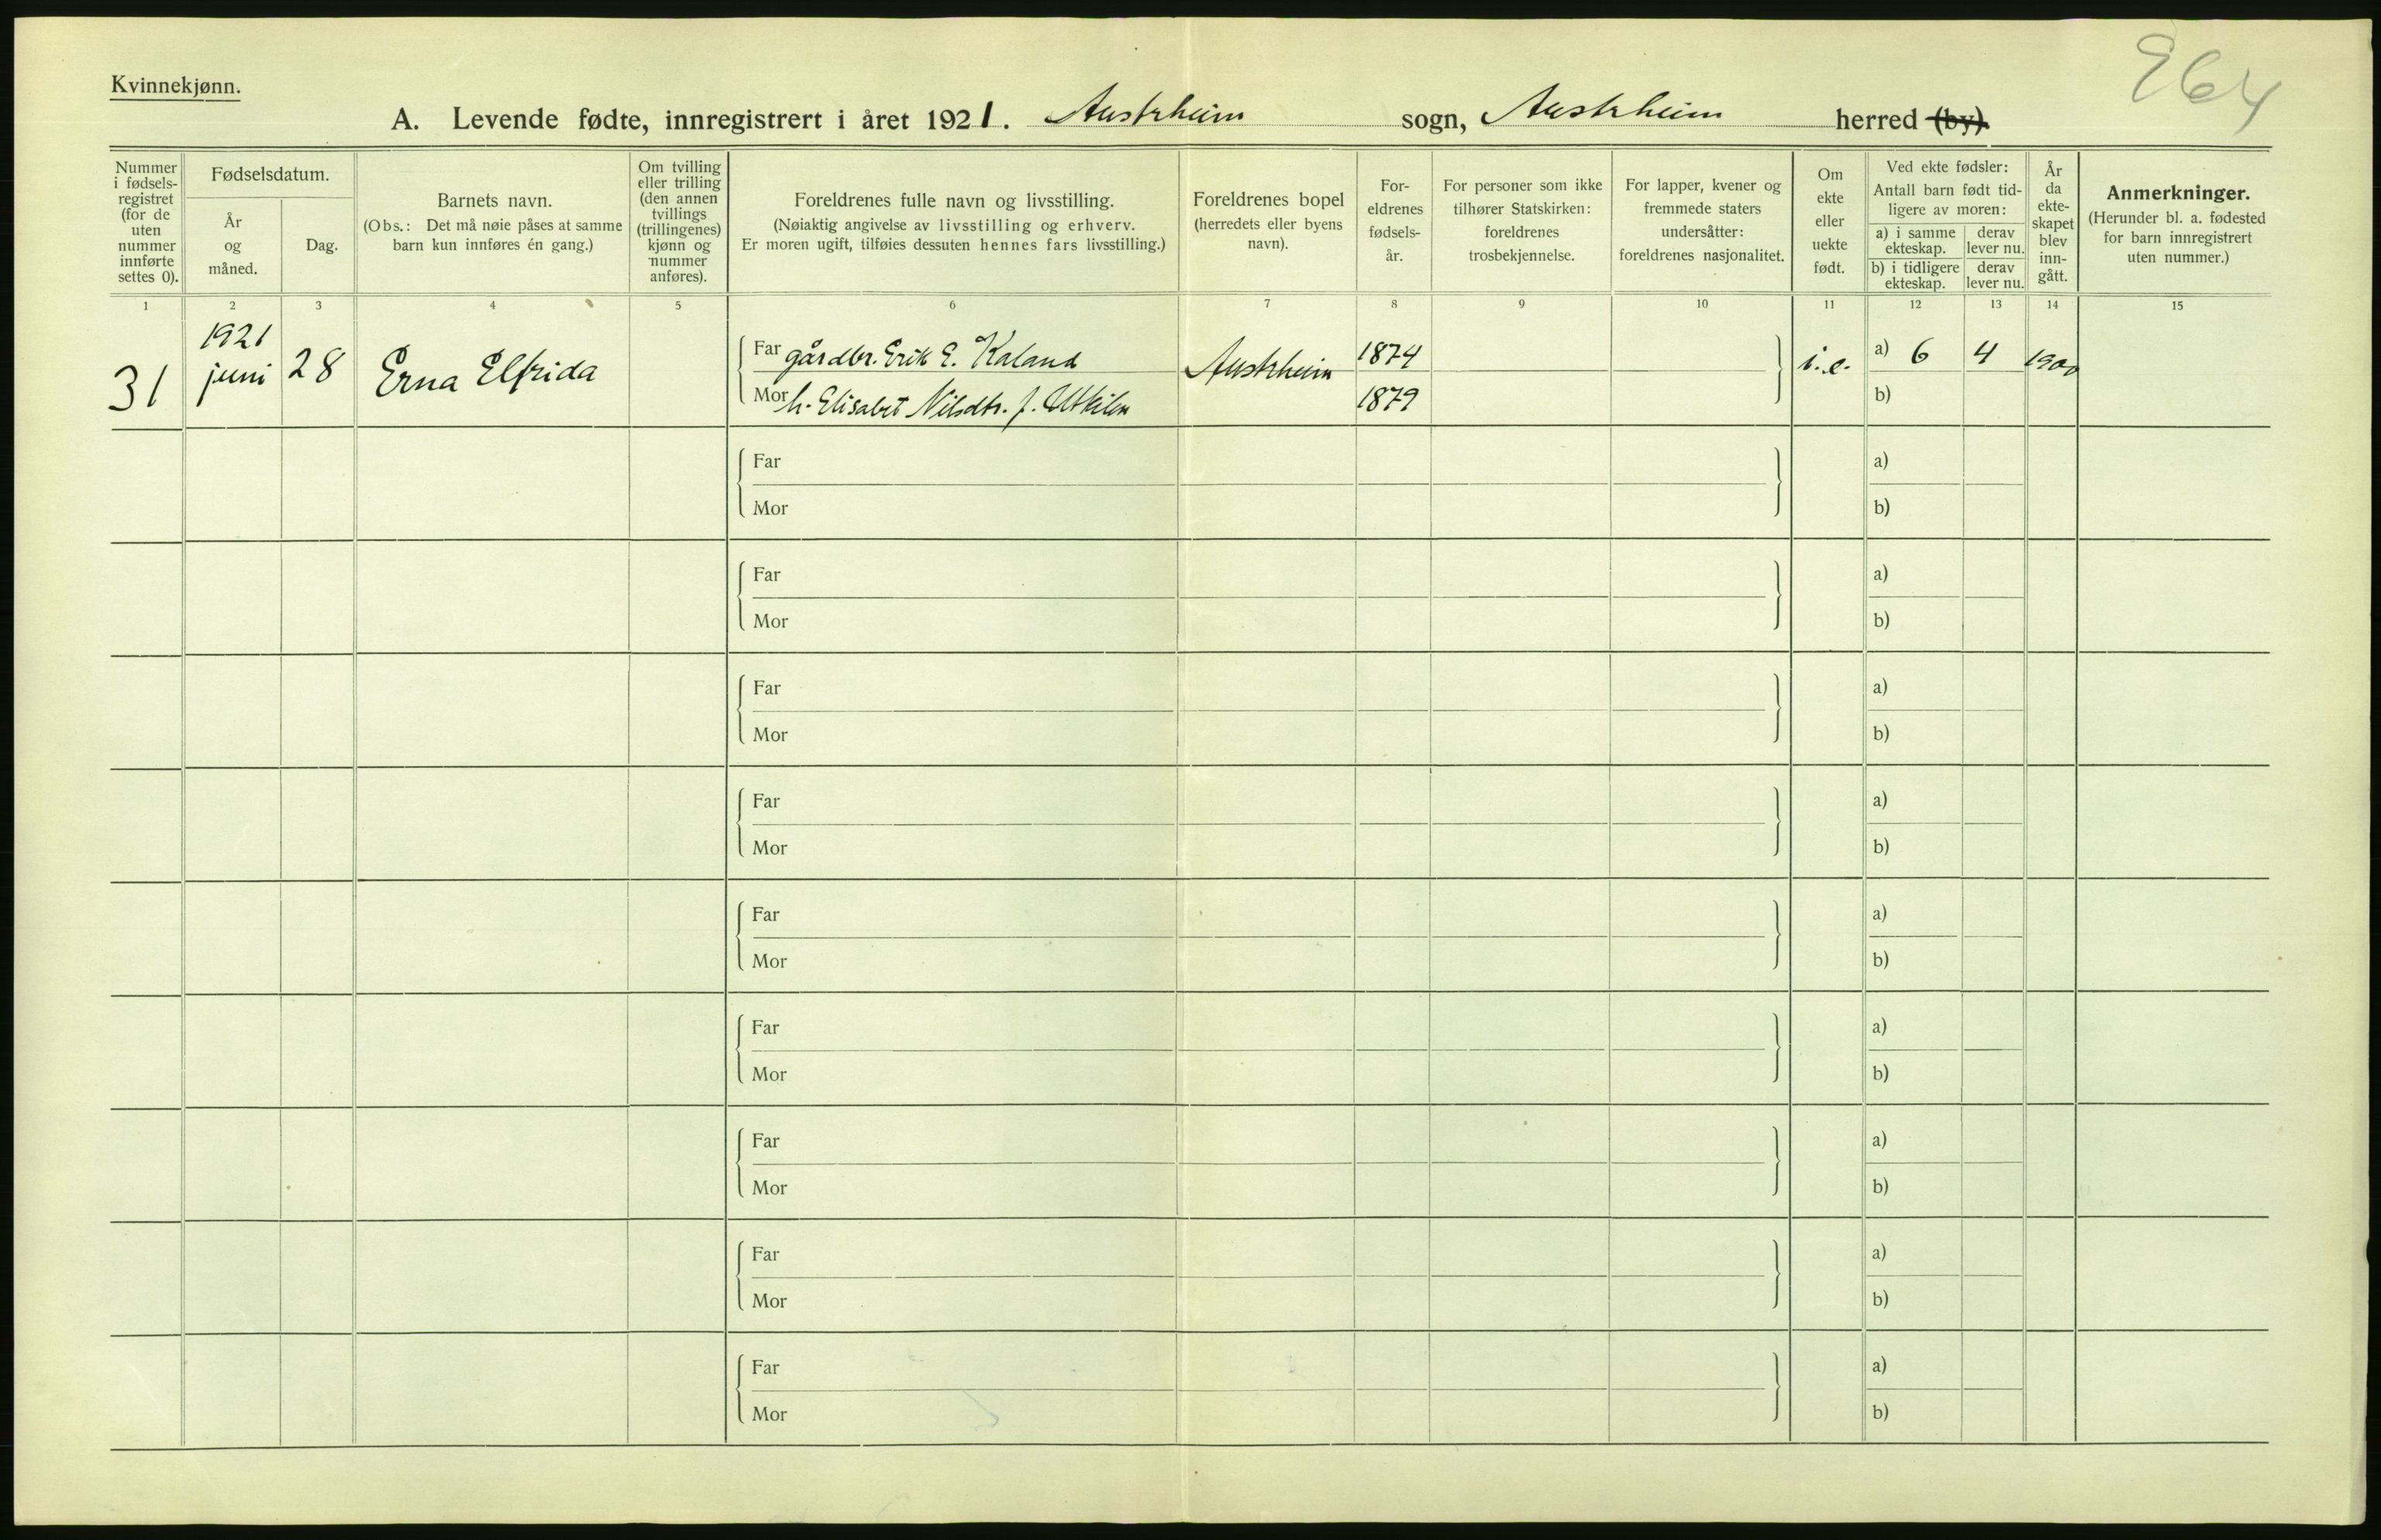 E64
Kvinnekjønn.
A. Levende fødte, innregistrert i året 1921. Austrheim sogn, Austrheim herred (by).
Nummer i fødsels-registret (for de uten nummer innførte settes 0).
Fødselsdatum.
År og måned.
Dag.
Barnets navn.
(Obs.: Det må nøie påses at samme barn kun innføres én gang.)
Om tvilling eller trilling (den annen tvillings (trillingenes) kjønn og nummer anføres).
Foreldrenes fulle navn og livsstilling.
(Nøiaktig angivelse av livsstilling og erhverv.
Er moren ugift, tilføies dessuten hennes fars livsstilling.)
Foreldrenes bopel
(herredets eller byens navn).
For-eldrenes fødsels-år.
For personer som ikke tilhører Statskirken: foreldrenes trosbekjennelse.
For lapper, kvener og fremmede staters undersåtter: foreldrenes nasjonalitet.
Om ekte eller uekte født.
Ved ekte fødsler:
Antall barn født tid-ligere av moren:
a) i samme ekteskap.
derav lever nu.
b) i tidligere ekteskap.
derav lever nu.
År da ekte-skapet blev inn-gått.
Anmerkninger.
(Herunder bl. a. fødested for barn innregistrert uten nummer.)
1 2 3 4 5 6 7 8 9 10 11 12 13 14 15
31 1921 juni 28 Erna Elfrida
Far gårdbr. Erik E. Kaland Austrheim 1874 i.e. a) 6 4 1900
Mor h. Elisabet Nilsdtr. f. Utkilen 1879 b)
Far a)
Mor b)
Far a)
Mor b)
Far a)
Mor b)
Far a)
Mor b)
Far a)
Mor b)
Far a)
Mor b)
Far a)
Mor b)
Far a)
Mor b)
Far a)
Mor b)